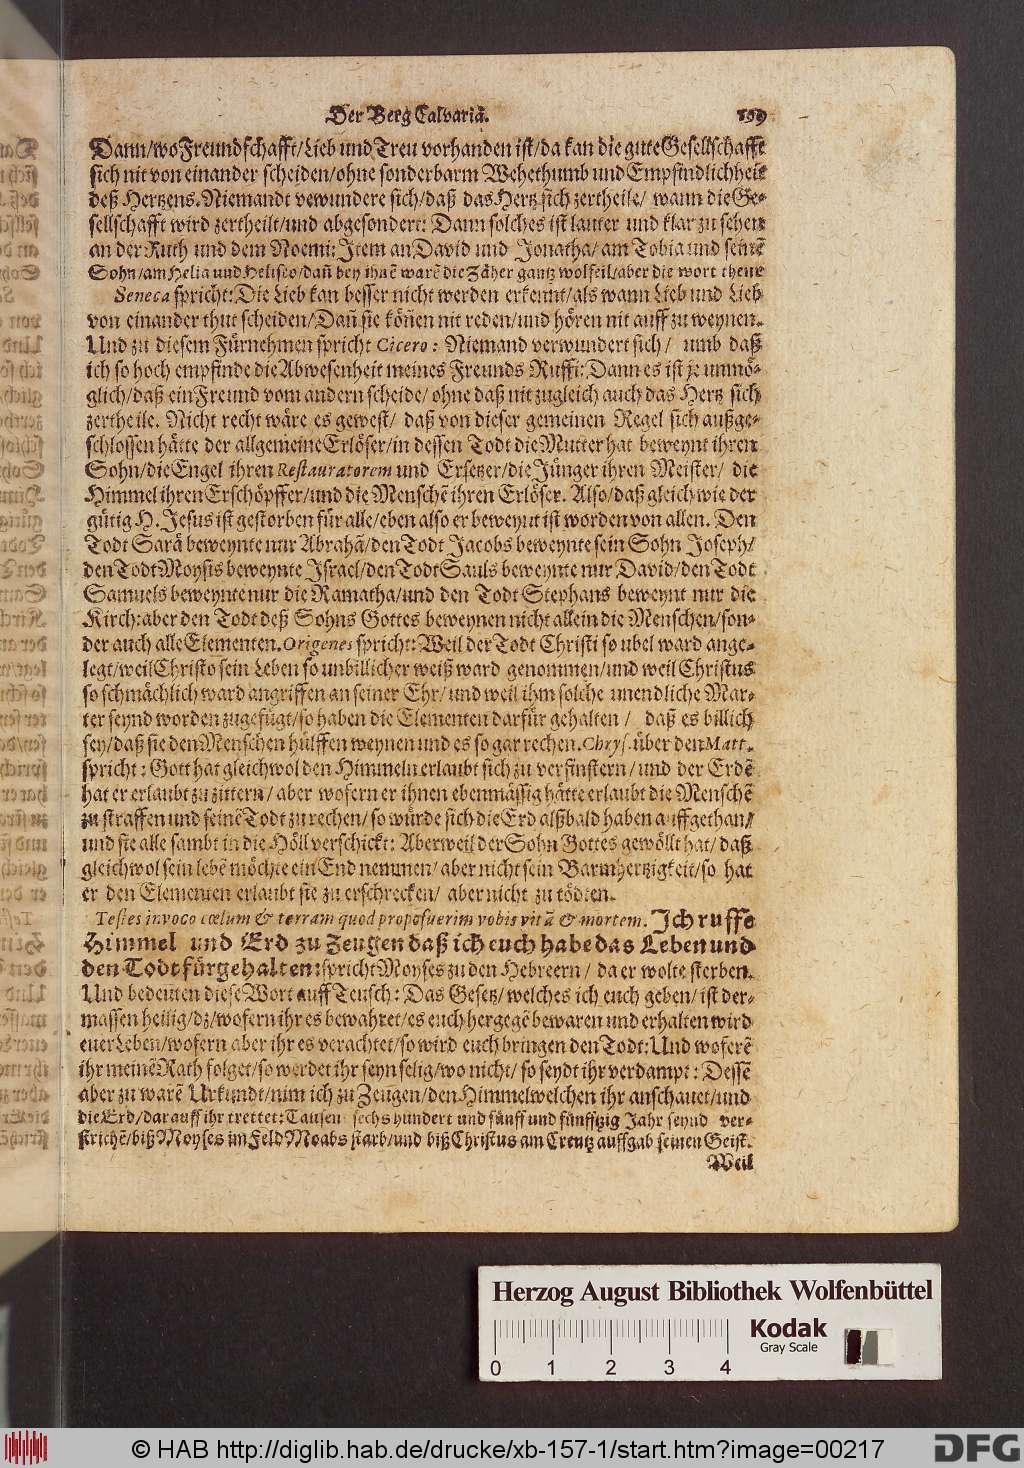 Der Berg Calvariæ. 199
Dann/wo Freundschafft/Lieb und Treu vorhanden ist/da kan die gute Gesellschafft
sich nit von einander scheiden/ohne sonderbarm Wehethumb und Empfindlichheit
deß Hertzens. Niemandt verwundere sich/daß das Hertz sich zertheile/ wann die Ge-
sellschafft wird zertheilt/und abgesondert: Dann solches ist lauter und klar zu sehen
an der Ruth und dem Noemi: Item an David und Jonatha/am Tobia und seinē
Sohn/am Helia und Heliseo/dañ bey ihnē warē die Zäher gantz wolfeil/aber die wort theur
Seneca spricht: Die Lieb kan besser nicht werden erkennt/als wann Lieb und Lieb
von einander thut scheiden/Dañ sie köñen nit reden/und hören nit auff zu weynen.
Und zu diesem Fürnehmen spricht Cicero: Niemand verwundert sich/ umb daß
ich so hoch empfinde die Abwesenheit meines Freunds Ruffi: Dann es ist je unmö-
glich/daß ein Freund vom andern scheide/ ohne daß nit zugleich auch das Hertz sich
zertheile. Nicht recht wäre es gewest/ daß von dieser gemeinen Regel sich außge-
schlossen hätte der allgemeine Erlöser/in dessen Todt die Mutter hat beweynt ihren
Sohn/die Engel ihren Restauratorem und Ersetzer/die Jünger ihren Meister/ die
Himmel ihren Erschöpffer/und die Menschē ihren Erlöser. Also/daß gleich wie der
gütig H. Jesus ist gestorben für alle/eben also er beweynt ist worden von allen. Den
Todt Sarā beweynte nur Abrahā/den Todt Jacobs beweynte sein Sohn Joseph/
den Todt Moysis beweynte Israel/den Todt Sauls beweynte nur David/den Todt
Samuels beweynte nur die Ramatha/und den Todt Stephans beweynt nur die
Kirch: aber den Todt deß Sohns Gottes beweynen nicht allein die Menschen/son-
der auch alle Elementen. Origenes spricht: Weil der Todt Christi so ubel ward ange-
legt/weil Christo sein Leben so unbillicher weiß ward genommen/und weil Christus
so schmächlich ward angriffen an seiner Ehr/und weil ihm solche unendliche Mar-
ter seynd worden zugefügt/so haben die Elementen darfür gehalten/ daß es billich
sey/daß sie den Menschen hülffen weynen und es so gar rechen. Chrys. über den Matt.
spricht: Gott hat gleichwol den Himmeln erlaubt sich zu verfinstern/und der Erdē
hat er erlaubt zu zittern/aber wofern er ihnen ebenmässig hätte erlaubt die Menschē
zu straffen und seinē Todt zu rechen/so würde sich die Erd alßbald haben auffgethan/
und sie alle sambt in die Höll verschickt: Aber weil der Sohn Gottes gewöllt hat/daß
gleichwol sein lebē möchte ein End nemmen/aber nicht sein Barmhertzigkeit/so hat
er den Elementen erlaubt sie zu erschrecken/ aber nicht zu tödten.
Testes invoco cœlum & terram quod proposuerim vobis vitā & mortem. Ich ruffe
Himmel und Erd zu Zeugen daß ich euch habe das Leben und
den Todt fürgehalten: spricht Moyses zu den Hebreern/ da er wolte sterben.
Und bedeuten diese Wort auff Teusch: Das Gesetz/welches ich euch geben/ist der-
massen heilig/dz/wofern ihr es bewahret/es euch hergegē bewaren und erhalten wird
euer Leben/wofern aber ihr es verachtet/so wird euch bringen den Todt: Und woferē
ihr meinē Rath folget/so werdet ihr seyn selig/wo nicht/so seydt ihr verdampt: Dessē
aber zu warē Urkundt/nim ich zu Zeugen/den Himmel welchen ihr anschauet/und
die Erd/darauff ihr trettet: Tausen sechs hundert und fünff und fünfftzig Jahr seynd ver-
strichē/biß Moyses im Feld Moabs starb/und biß Christus am Creutz auffgab seinen Geist.
Weil
Herzog August Bibliothek Wolfenbüttel
Kodak
Gray Scale
0 1 2 3 4
© HAB http://diglib.hab.de/drucke/xb-157-1/start.htm?image=00217
DFG